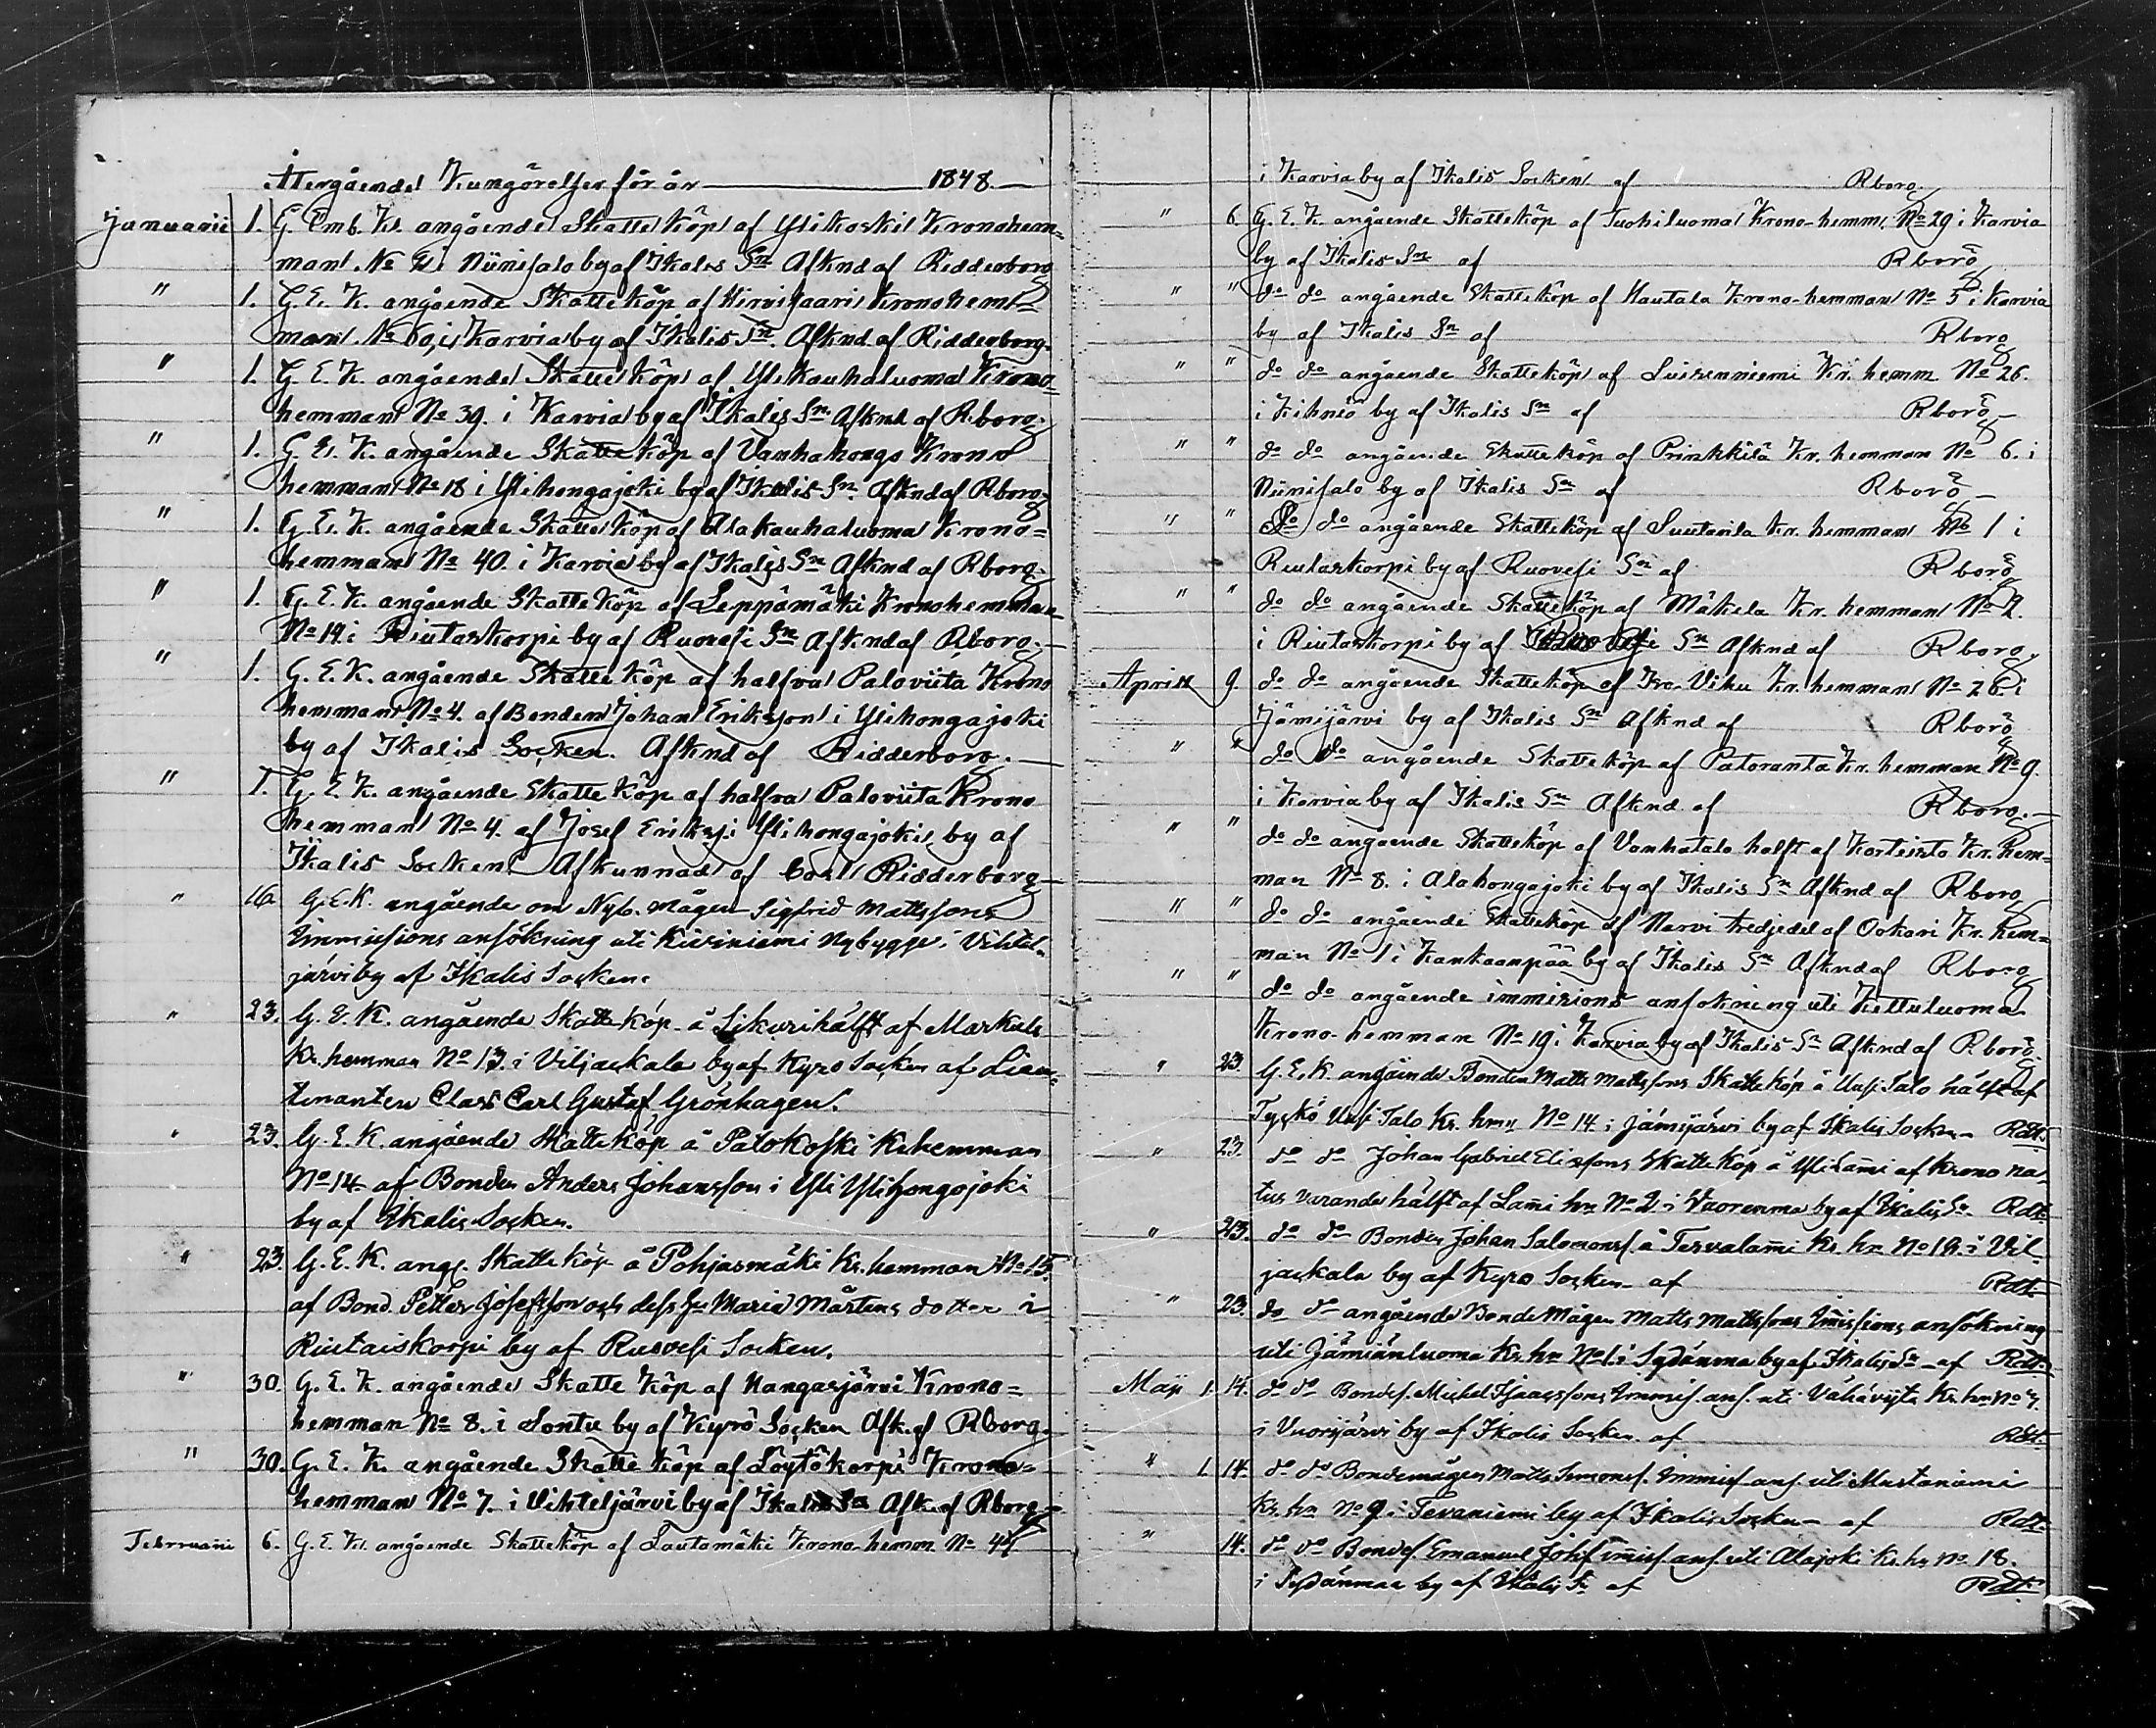 Återgående Kungörelser för år 1848.
Januarii 1. G. Emb. K. angående Skatte Köp af Ylikoski Kronohem=
man No 2 i Niinisalo by af Ikalis Sn Afknd af Ridderborg
" 1. G. E. K. angående Skatte köp af Hirvisaari Kronohem=
man No 60, i Karvia by af Ikalis Sn. Afknd. af Ridderborg.
" 1. G. E. K. angående Skatte köp af Ylikauhaluoma Krono
hemman No 39. i Karvia by af Ikalis Sn Afknd af Rborg.
" 1. G. E. K. angående Skatte köp af Vanhahonge Krono
hemman No 18 i Ylihongajoki by af Ikalis Sn. Afknd af Rborg.
" 1. G. E. K. angående Skatte köp af Alakauhaluoma Krono=
hemman No 40. i Karvia by af Ikalis Sn Afknd af Rborg.
" 1. G. E. K. angående Skatte Köp af Leppämäki Kronohemman
No 14 i Riutaskorpi by af Ruovesi Sn Afknd af Rborg.
" 1. G. E. K. angående Skatte Köp af halfva Paloviita Krono
hemman No 4. af Bonden Johan Eriksson i Ylihongajoki
by af Ikalis Socken. Afknd af Ridderborg.
" 1. G. E. K. angående Skatte Köp af halfva Paloviita Krono
hemman No 4. af Josef Eriks. i Ylihongajoki by af
Ikalis Socken Afkunnad af Carl Ridderborg
" 16. G. E. K. angående om Nyb. mågen Sigfrid Mattssons
Immissions ansökning uti Kiviniemi Nybygge i Vihtel=
järvi by af Ikalis Socken.
" 23. G. E. K. angående Skatte köp å Sikuri hälft af Markula
Kr. hemman No 13. i Viljackala by af Kyro Socken af Lieu=
tenanten Clas Carl Gustaf Grönhagen.
" 23. G. E. K. angående Skatte köp å Palokoski Kr. hemman
No 14 af Bonden Anders Johansson i Yli Ylihongojoki
by af Ikalis Socken.
" 23. G. E. K. ang. Skatte köp å Pohjasmäki Kr. hemman No 15.
af Bond. Petter Josefsson och dess Hu Maria Mårtens dotter i
Riutaiskorpi by af Ruovesi Socken.
" 30. G. E. K. angående Skatte Köp af Hangasjärvi Krono=
hemman No 8. i Sontu by af Kyrö Socken Afk. af Rborg.
" 30. G. E. K. angående Skatte köp af Löytökorpi Krono=
hemman No 7. i Vihteljärvi by af Ikalis Sn Afk. af Rborg
Februarii 6. G. E. K. angående Skatte köp af Lautamäki Krono hemm. No 44
i Karvia by af Ikalis Socken af Rborg.
" 6. G. E. K. angående Skatteköp af Tuohiluoma Krono-hemm. No 29 i Karvia
by af Ikalis Sn af Rborg
" " do do angående Skatteköp af Hautala Krono-hemman No 5 i Karvia
by af Ikalis Sn af Rborg
" " do do angående Skatteköp af Kr. hemm No 26.
i Kihniö by af Ikalis Sn af Rborg
" " do do angående Skatteköp af Prinkkilä Kr. hemman No 6. i
Niinisalo by af Ikalis Sn af Rborg
" " do do angående Skatteköp af Suutarila Kr. hemman No 1 i
Riutaskorpi by af Ruovesi Sn af Rborg
" " do do angående Skatteköp af Mäkelä Kr. hemman No 2.
i Riutaskorpi by af Sn Afknd af Rborg.
Aprill 9. do do angående Skatteköp af Viku Kr. hemman No 26 i
Jämijärvi by af Ikalis Sn Afknd af Rborg
" " do do angående Skatteköp af Patoranta Kr. hemman No 9.
i Karvia by af Ikalis Sn Afknd. af Rborg.
" " do do angående Skatteköp af Vanhatalo halft af Korteisto Kr. hem=
man No 8. i Alahongajoki by af Ikalis Sn Afknd af Rborg
" " do do angående Skatteköp af Narvi tredjedel af Ookari Kr. hem=
man No 1 i Kankaanpää by af Ikalis Sn Afknd af Rborg
" " do do angående immisions ansokning uti Kettuluoma
Krono-hemman No 19 i Karvia by af Ikalis Sn Afknd af Rborg
" 23. G. E. K. angående Bonden Matts Mattssons Skatte köp å Uusi Talo hälft af
Tyskö Uusi Talo Kr. hmn No 14 i Jämijärvi by af Ikalis Socken Rdt.
" 23. do do Johan Gabriel Eliassons Skatte köp å Ylilammi af Krono na=
tur varande hälft af Lammi hn No 2 i Vuorenma by af Ikalis Sn. Rdt.
" 23. do do Bonden Johan Salomonss. å Tervalammi Kr. hn No 12 i Vil=
jackala by af Kyro Socken af Rdt.
" 23. do do angående Bonde Mågen Matts Mattssons Imissions ansökning
uti Jämiänluoma Kr. hn No 1. i Sydänma by af Ikalis Sn af Rdt.
Maji 1. 14. do do Bondes. Michel Isacssons Immiss. ans. uti Vähäviita Kr. hn No 7.
i Vuorijärvi by af Ikalis Socken af Rdt.
" 1. 14. do do Bondemågen Matts Simonss. Immiss. ans. uti Mustaniemi
Kr. hn No 9 i Tevaniemi by af Ikalis Socken af Rdt.
" 14. do do Bondes. Emanuel Johss imiss. ans. uti Alajoki Kr. hn No 18.
i Sydänmaa by af Ikalis Sn af Rdt.